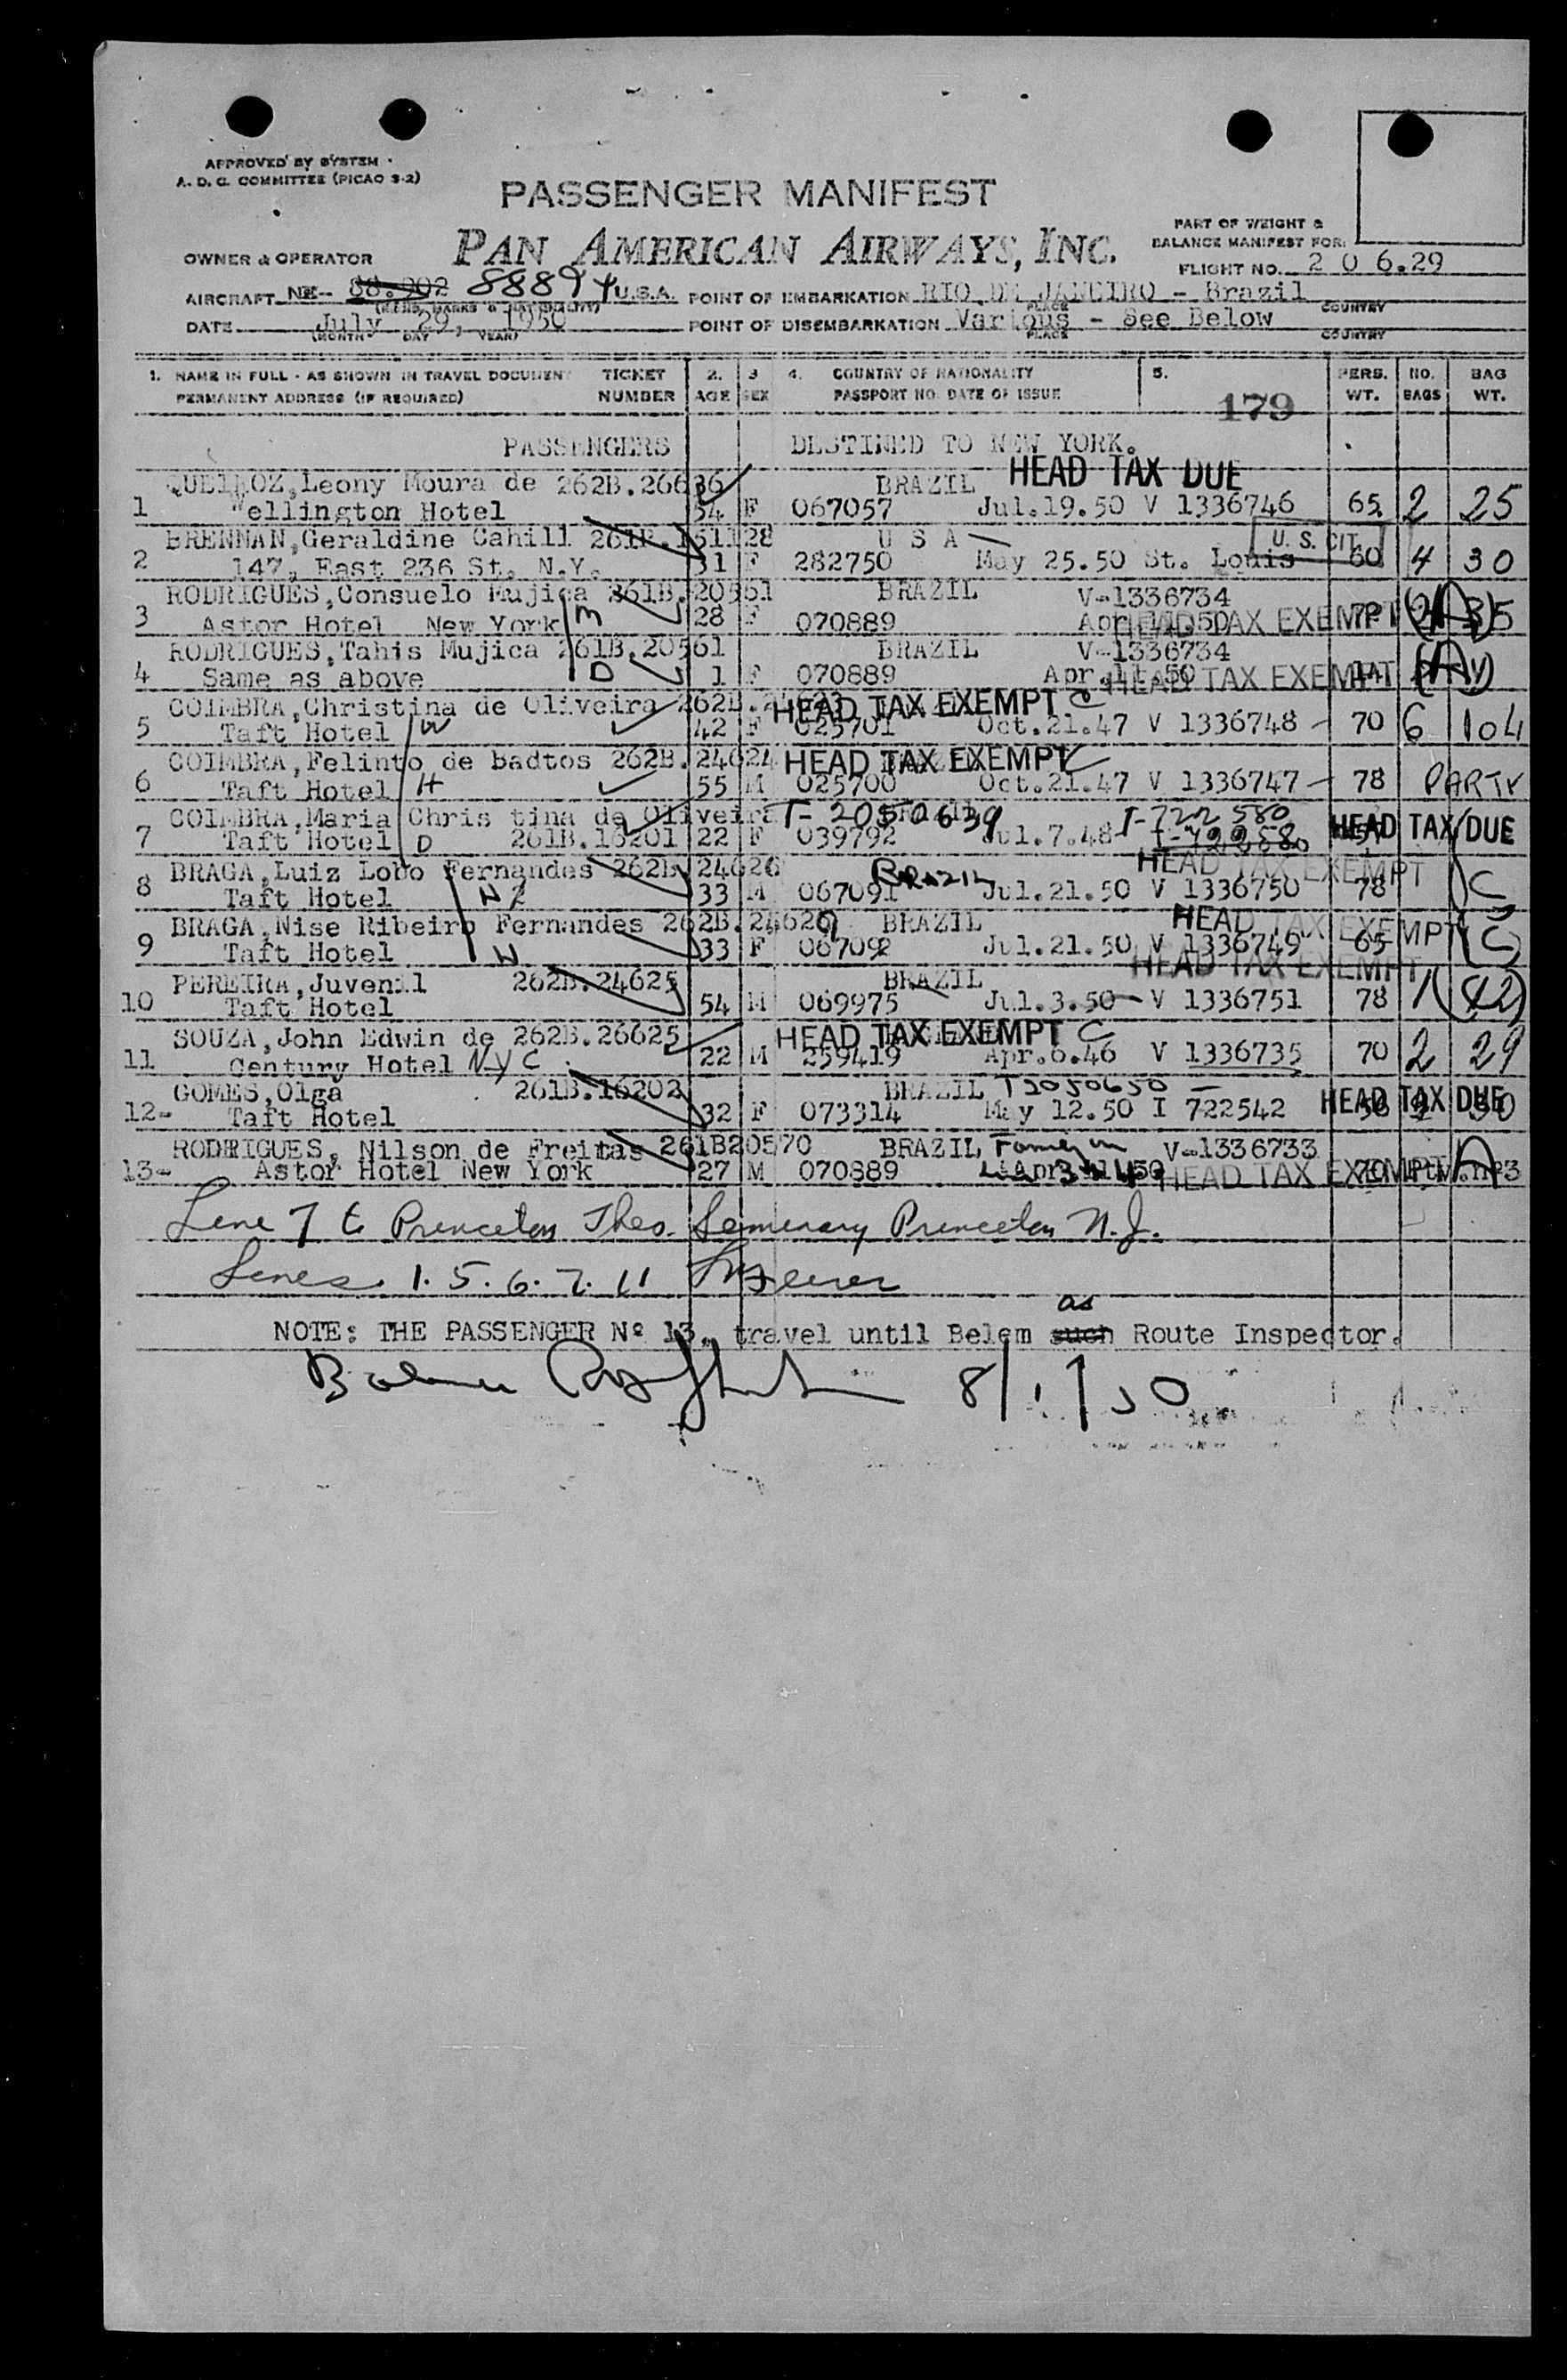 APPROVED BY SYSTEM
A. D. C. COMMITTEE (PICAO S-2)
PASSENGER MANIFEST
PAN AMERICAN AIRWAYS, INC.
PART OF WEIGHT &
BALANCE MANIFEST FOR:
OWNER & OPERATOR
FLIGHT NO. 2 0 6.29
AIRCRAFT 88.902 88894 U.S.A. POINT OF EMBARKATION RIO DE JANEIRO - Brazil
PLACE COUNTRY
DATE July 29, 1950 POINT OF DISEMBARKATION Various - See Below
(MONTH DAY YEAR) PLACE COUNTRY
1. NAME IN FULL - AS SHOWN IN TRAVEL DOCUMENT TICKET 2. 3 4. COUNTRY OF NATIONALITY 5. PERS. NO. BAG
PERMANENT ADDRESS (IF REQUIRED) NUMBER AGE SEX PASSPORT NO. DATE OF ISSUE 179 WT. BAGS WT.
PASSENGERS DESTINED TO NEW YORK.
QUEIROZ, Leony Moura de 262B.26636 BRAZIL HEAD TAX DUE
1 "ellington Hotel 54 F 067057 Jul.19.50 V 1336746 65 2 25
BRENNAN, Geraldine Cahill U S A U. S. CIT.
2 147, East 236 St. N.Y. 31 F 282750 May 25.50 St. Louis 60 4 30
RODRIGUES, Consuelo Mujica 261B.20561 BRAZIL V-1336734
3 Astor Hotel New York M 28 F 070889 HEAD TAX EXEMPT
RODRIGUES, Tahis Mujica 261B.20561 BRAZIL V-1336734
4 Same as above D 1 F 070889 Apr.11.50 HEAD TAX EXEMPT
COIMBRA, Christina de Oliveira HEAD TAX EXEMPT C
5 Taft Hotel W 42 F 025701 Oct.21.47 V 1336748 70 6 104
COIMBRA, Felinto de Badtos 262B.24624 HEAD TAX EXEMPT
6 Taft Hotel H 55 M 025700 Oct.21.47 V 1336747 78 PARTY
COIMBRA, Maria Chris tina de Oliveira T-2050639 I-722 580
7 Taft Hotel D 261B.16201 22 F 039792 Jul.7.48 HEAD TAX DUE
BRAGA, Luiz Lobo Fernandes 262B.24626 BRAZIL HEAD TAX EXEMPT
8 Taft Hotel 33 M 067091 Jul.21.50 V 1336750 78 C
BRAGA, Nise Ribeiro Fernandes BRAZIL HEAD TAX EXEMPT
9 Taft Hotel W 33 F 067092 Jul.21.50 V 1336749 65 C
HEAD TAX EXEMPT
PEREIRA, Juvenil 262B.24625 BRAZIL
10 Taft Hotel 54 M 069975 Jul.3.50 V 1336751 78 1
SOUZA, John Edwin de 262B.26625 HEAD TAX EXEMPT C
11 Century Hotel NYC 22 M 259419 Apr.6.46 V 1336735 70 2 29
GOMES, Olga 261B.16202 BRAZIL T2050650
12- Taft Hotel 32 F 073314 May 12.50 I 722542 HEAD TAX DUE
RODRIGUES, Nilson de Freitas 261B20570 BRAZIL V-1336733
13- Astor Hotel New York 27 M 070889 HEAD TAX EXEMPT
Line 7 to Princeton Theo. Seminary Princeton N.J.
Lines 1. 5. 6. 7. 11
as
NOTE: THE PASSENGER Nº 13, travel until Belem such Route Inspector.
8/1/50